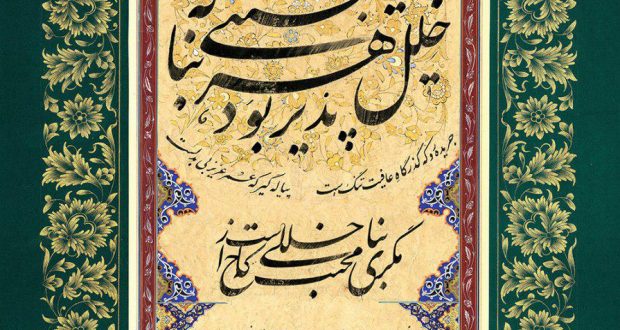 خلل پذیر بود هر بنا که می بینی
جریده رو که گذرگاه عافیت تنگ است
پیاله گیر که عمر عزیز بی بدلست
مگر بنای محبت که خالی از خللست